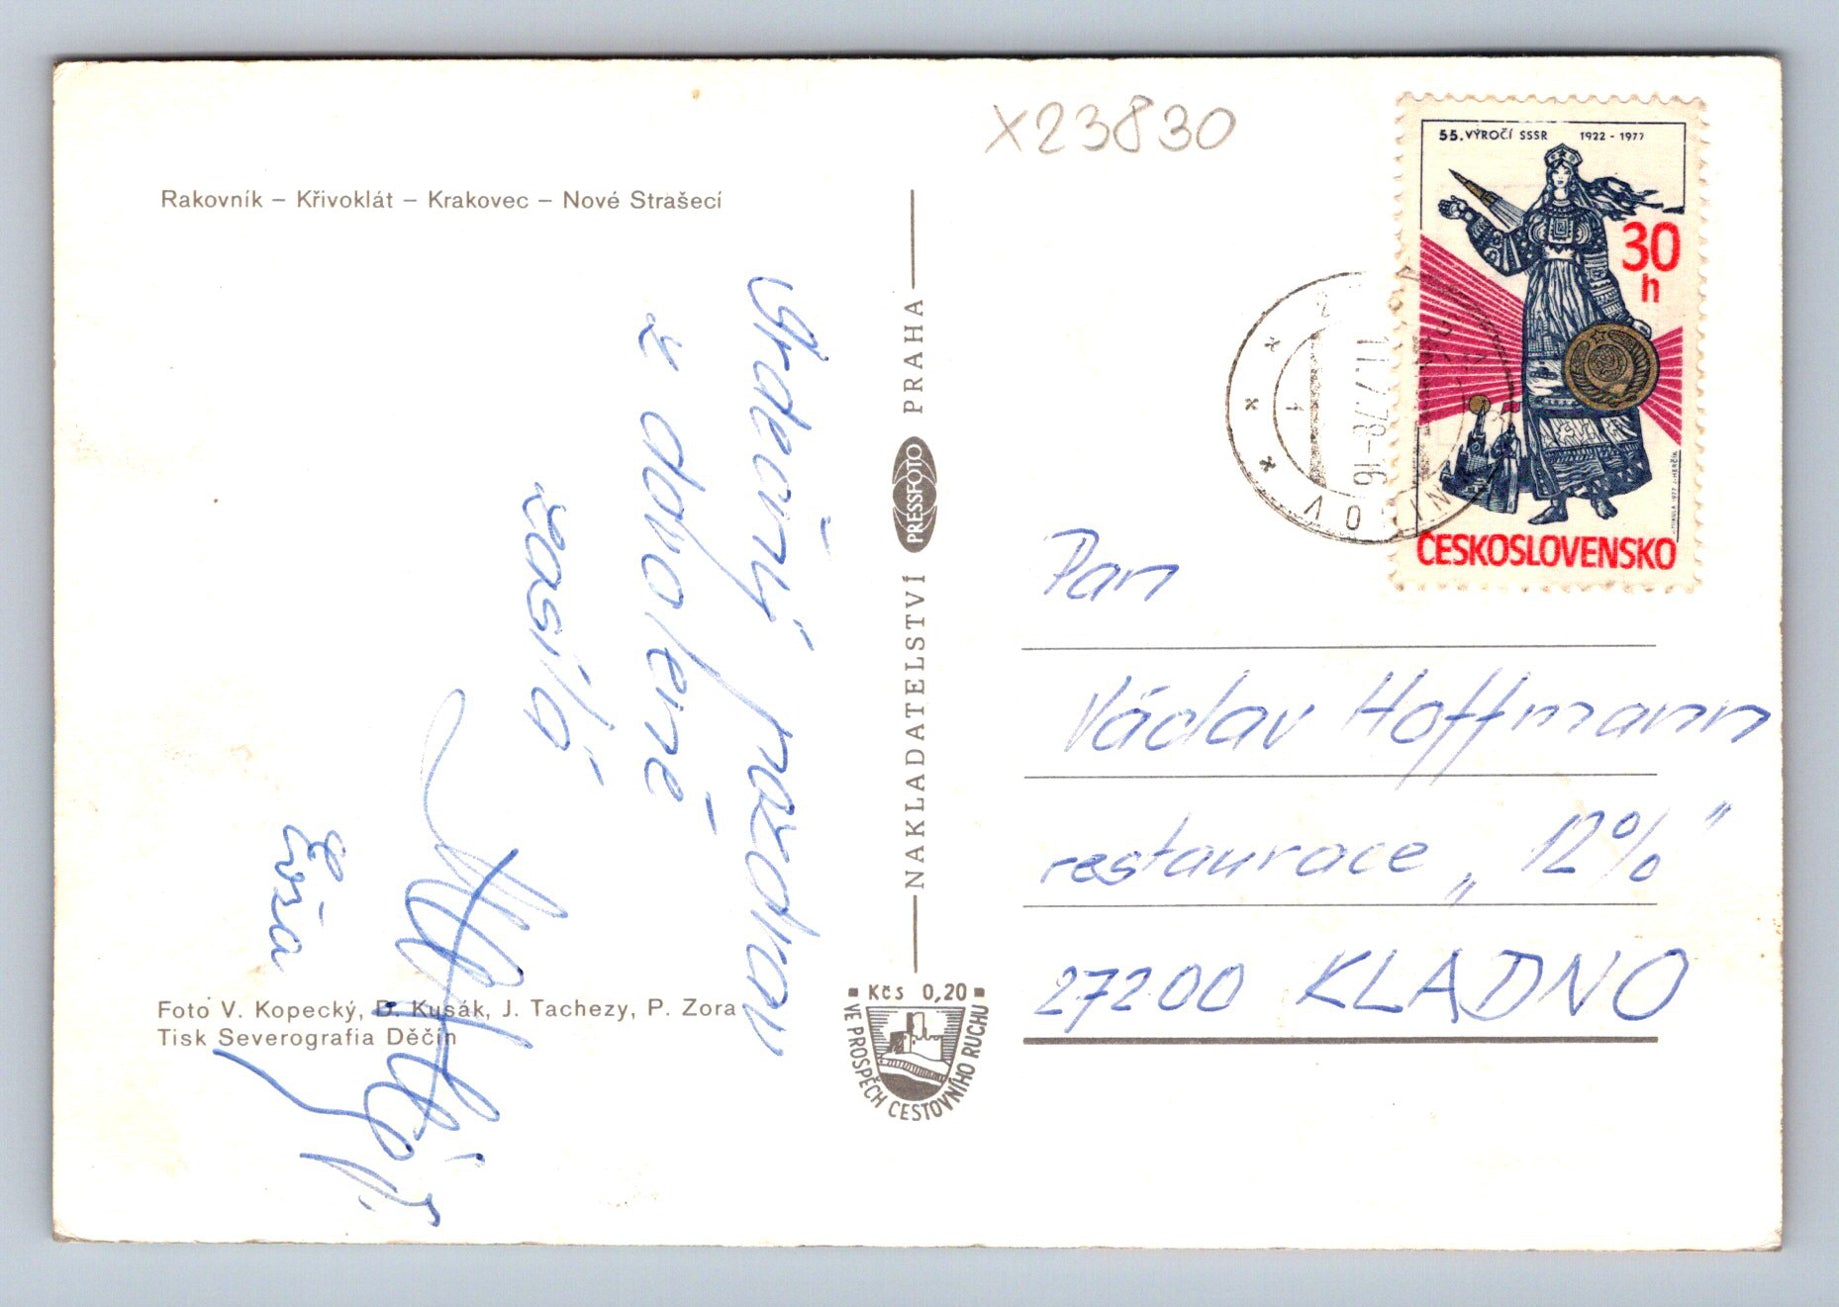 X23830
Rakovník – Křivoklát – Krakovec – Nové Strašecí
Srdečný pozdrav
z dovolené
zasílá
Evža
Foto V. Kopecký, D. Kusák, J. Tachezy, P. Zora
Tisk Severografia Děčín
NAKLADATELSTVÍ PRESSFOTO PRAHA
Kčs 0,20
VE PROSPĚCH CESTOVNÍHO RUCHU
55. VÝROČÍ SSSR 1922 - 1977
30
h
ČESKOSLOVENSKO
11.7.78-16
1
Pan
Václav Hoffmann
restaurace „12%"
27200 KLADNO